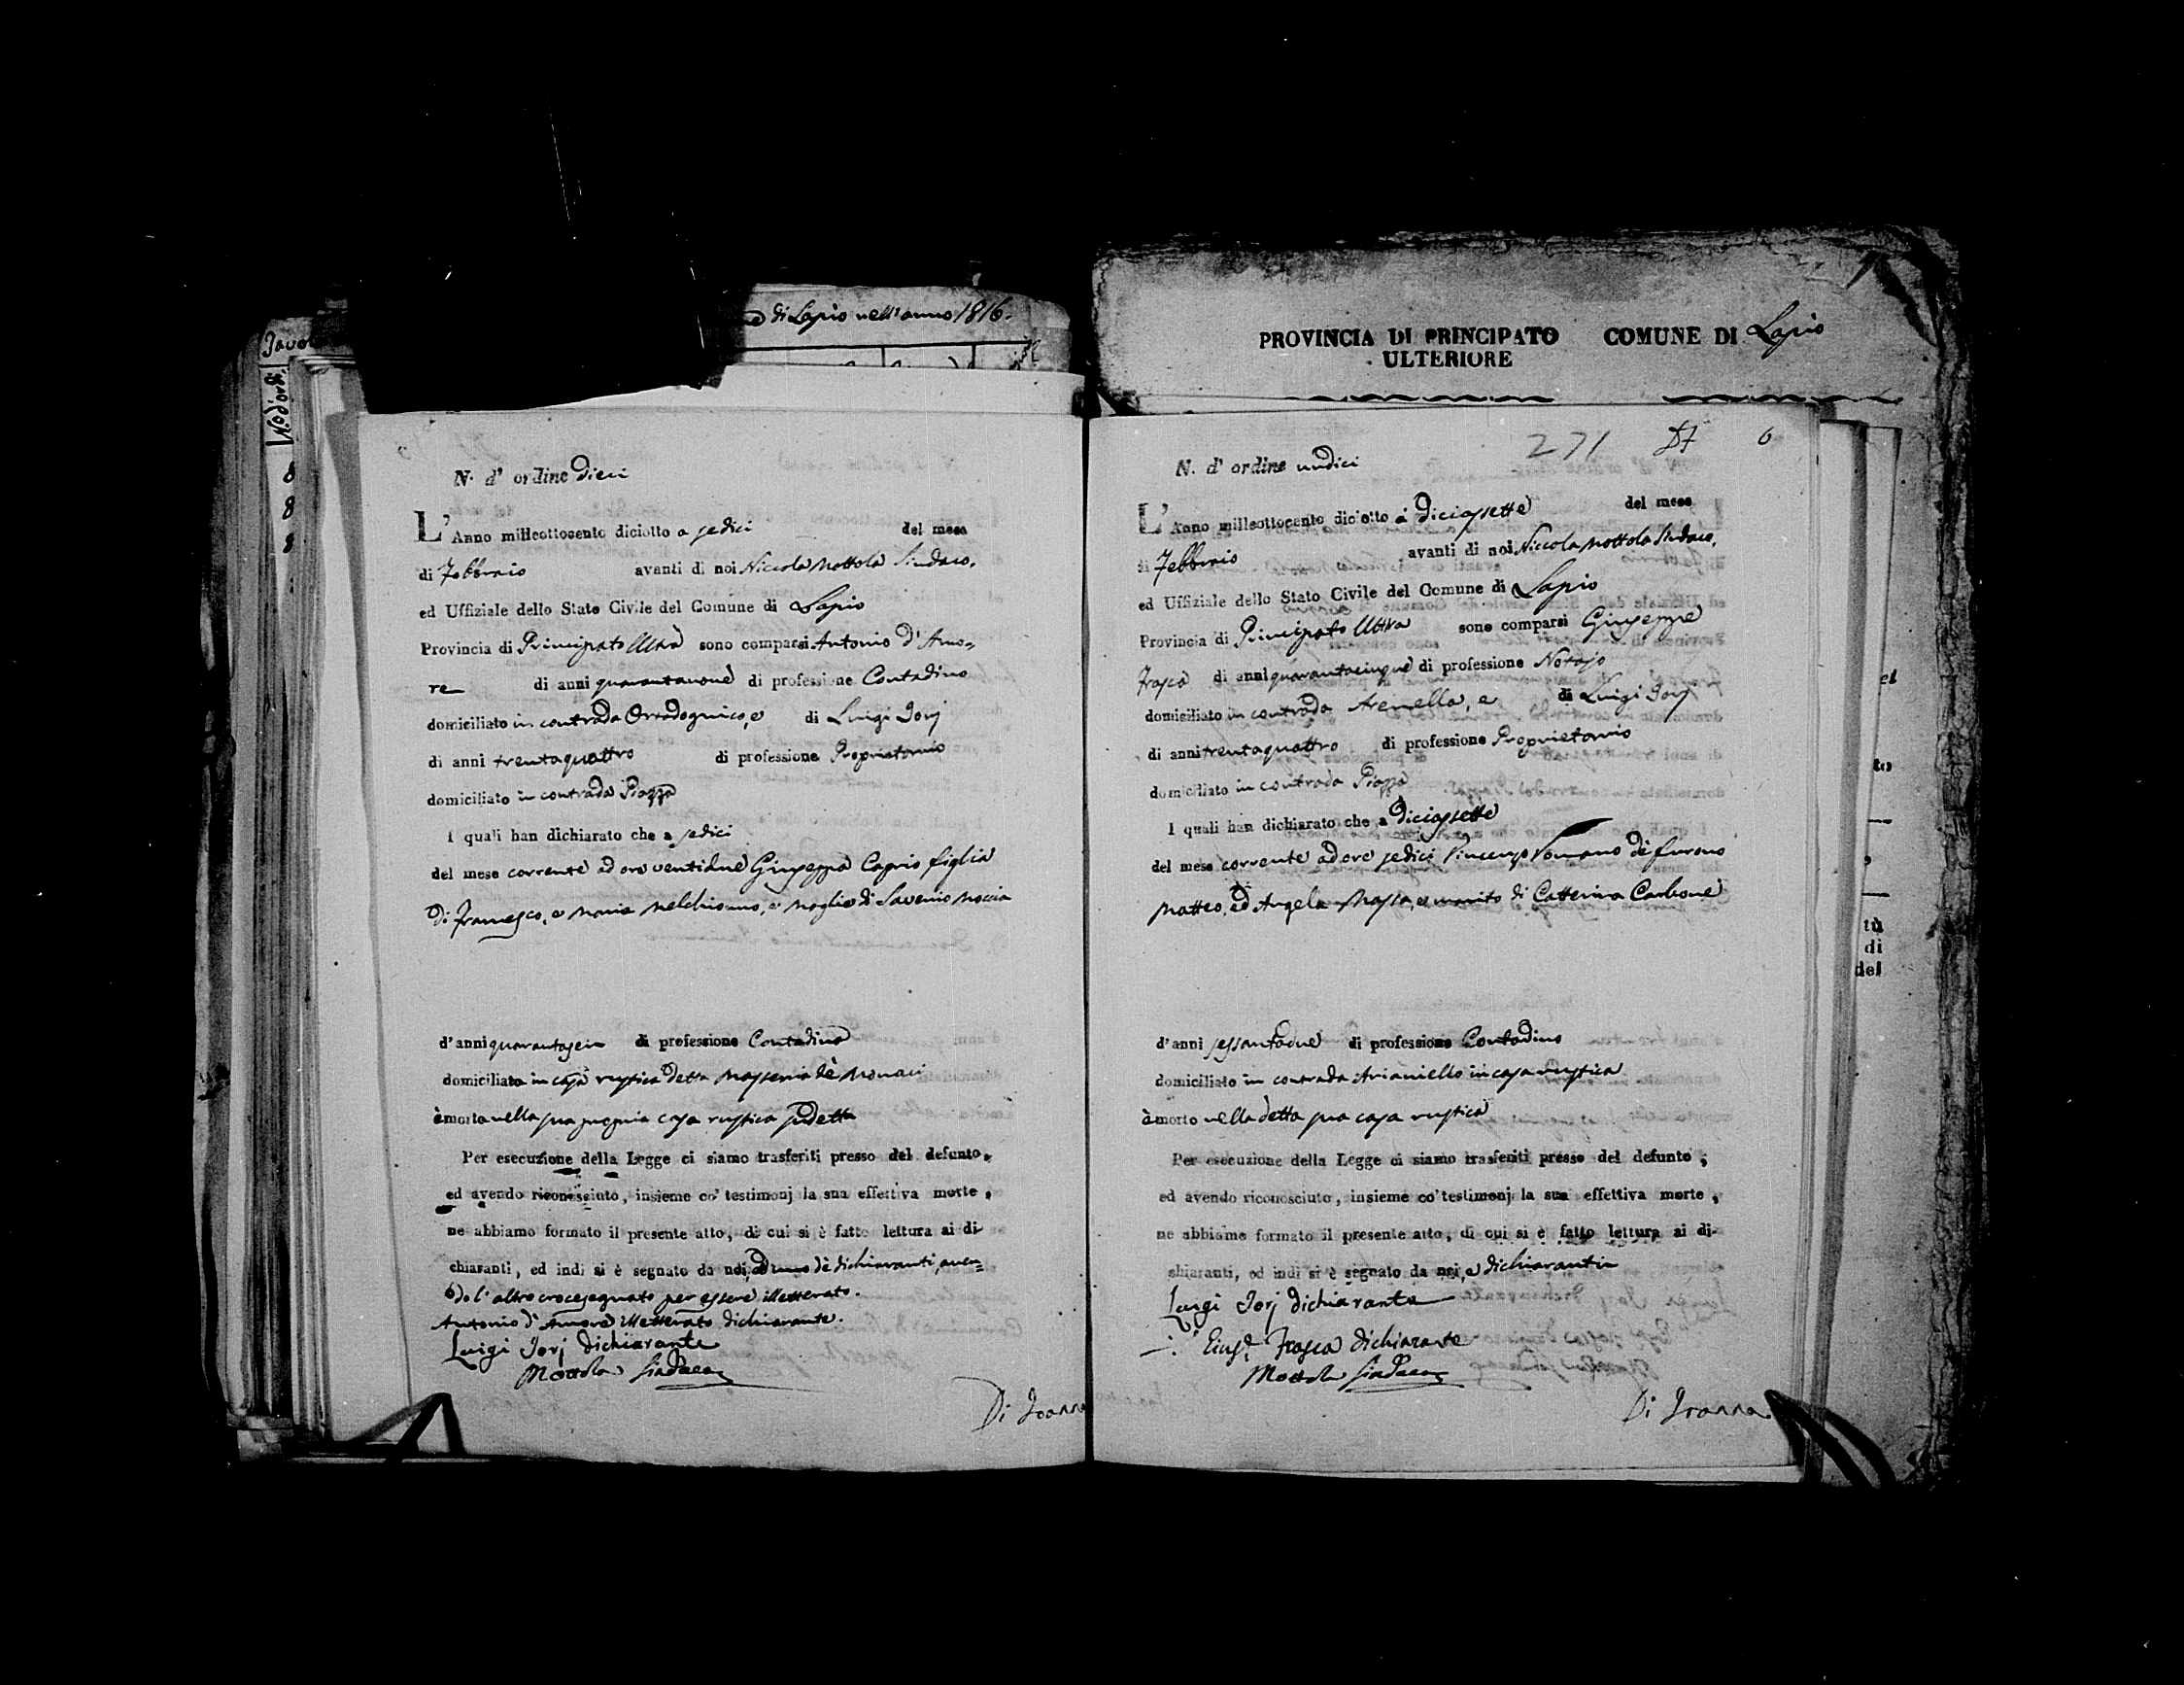 di Lapio nell'anno 1816.
N. d'ord.
8
8
8
PROVINCIA DI PRINCIPATO COMUNE DI Lapio
ULTERIORE
N. d' ordine Dieci
L'Anno milleottocento diciotto a sedici del mese
di Febbraio avanti di noi Niccola Mottola Sindaco,
ed Uffiziale dello Stato Civile del Comune di Lapio
Provincia di Principato Ultra sono comparsi Antonio D'Amo-
re di anni quarantanove di professione Contadino
domiciliato in contrada Ortodognico, e di Luigi Jorj
di anni trentaquattro di professione Proprietario
domiciliato in contrada Piazza
I quali han dichiarato che a sedici
del mese corrente ad ore ventidue Giuseppa Caprio figlia
di Francesco, e Maria Melchionno, e moglie di Saverio Moccia
d'anni quarantasei di professione Contadina
domiciliata in casa rustica detta Masseria de Monaci
è morta nella sua propria casa rustica sudetta
Per esecuzione della Legge ci siamo trasferiti presso del defunto,
ed avendo riconosciuto, insieme co' testimonj la sua effettiva morte,
ne abbiamo formato il presente atto, di cui si è fatto lettura ai di-
chiaranti, ed indi si è segnato da noi, ed uno dè dichiaranti, aven-
do l'altro crocesegnato per essere illetterato.
Antonio d'Amore illetterato dichiarante.
Luigi Jorj dichiarante
Mottola Sindaco
Di Ioanna
271 6
N. d' ordine undici
L'Anno milleottocento diciotto à diciassette del mese
di Febbraio avanti di noi Niccola Mottola Sindaco,
ed Uffiziale dello Stato Civile del Comune di Lapio
Provincia di Principato Ultra sono comparsi Giuseppe
Frasca di anni quarantacinque di professione Notajo
domiciliato in contrada Arenella, e di Luigi Jorj
di anni trentaquattro di professione Proprietario
domiciliato in contrada Piazza
I quali han dichiarato che a diciassette
del mese corrente ad ore sedici Vincenzo Romano dè furono
Matteo, ed Angela Massa, e marito di Catterina Carbone
d'anni sessantadue di professione Contadino
domiciliato in contrada Arianiello in casa rustica
è morto nella detta sua casa rustica
Per esecuzione della Legge ci siamo trasferiti presso del defunto,
ed avendo riconosciuto, insieme co' testimonj la sua effettiva morte,
ne abbiamo formato il presente atto, di cui si è fatto lettura ai di-
chiaranti, ed indi si è segnato da noi, e dichiaranti
Luigi Jorj dichiarante
Gius.e Frasca dichiarante
Mottola Sindaco
Di Ioanna
to
tù
di
del